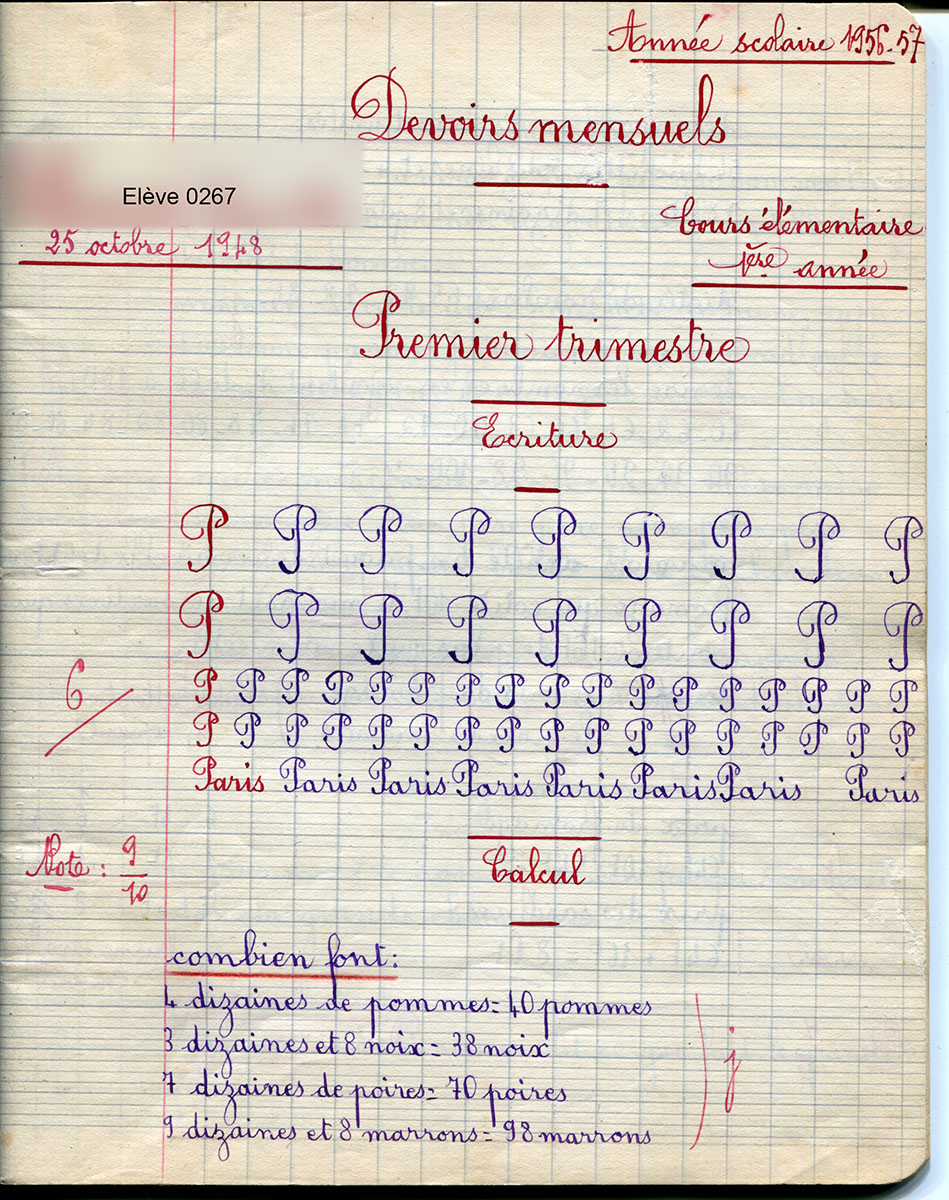 Année scolaire 1956-57
Devoirs mensuels
Elève 0267
25 octobre 1948
Cours élémentaire
1ère année
Premier trimestre
Ecriture
P P P P P P P P P
P P P P P P P P P
6
P P P P P P P P P P P P P P P P P
P P P P P P P P P P P P P P P P P
Paris Paris Paris Paris Paris Paris Paris Paris
Note : 9/10
Calcul
combien font:
4 dizaines de pommes = 40 pommes
3 dizaines et 8 noix = 38 noix
7 dizaines de poires = 70 poires
9 dizaines et 8 marrons = 98 marrons
j